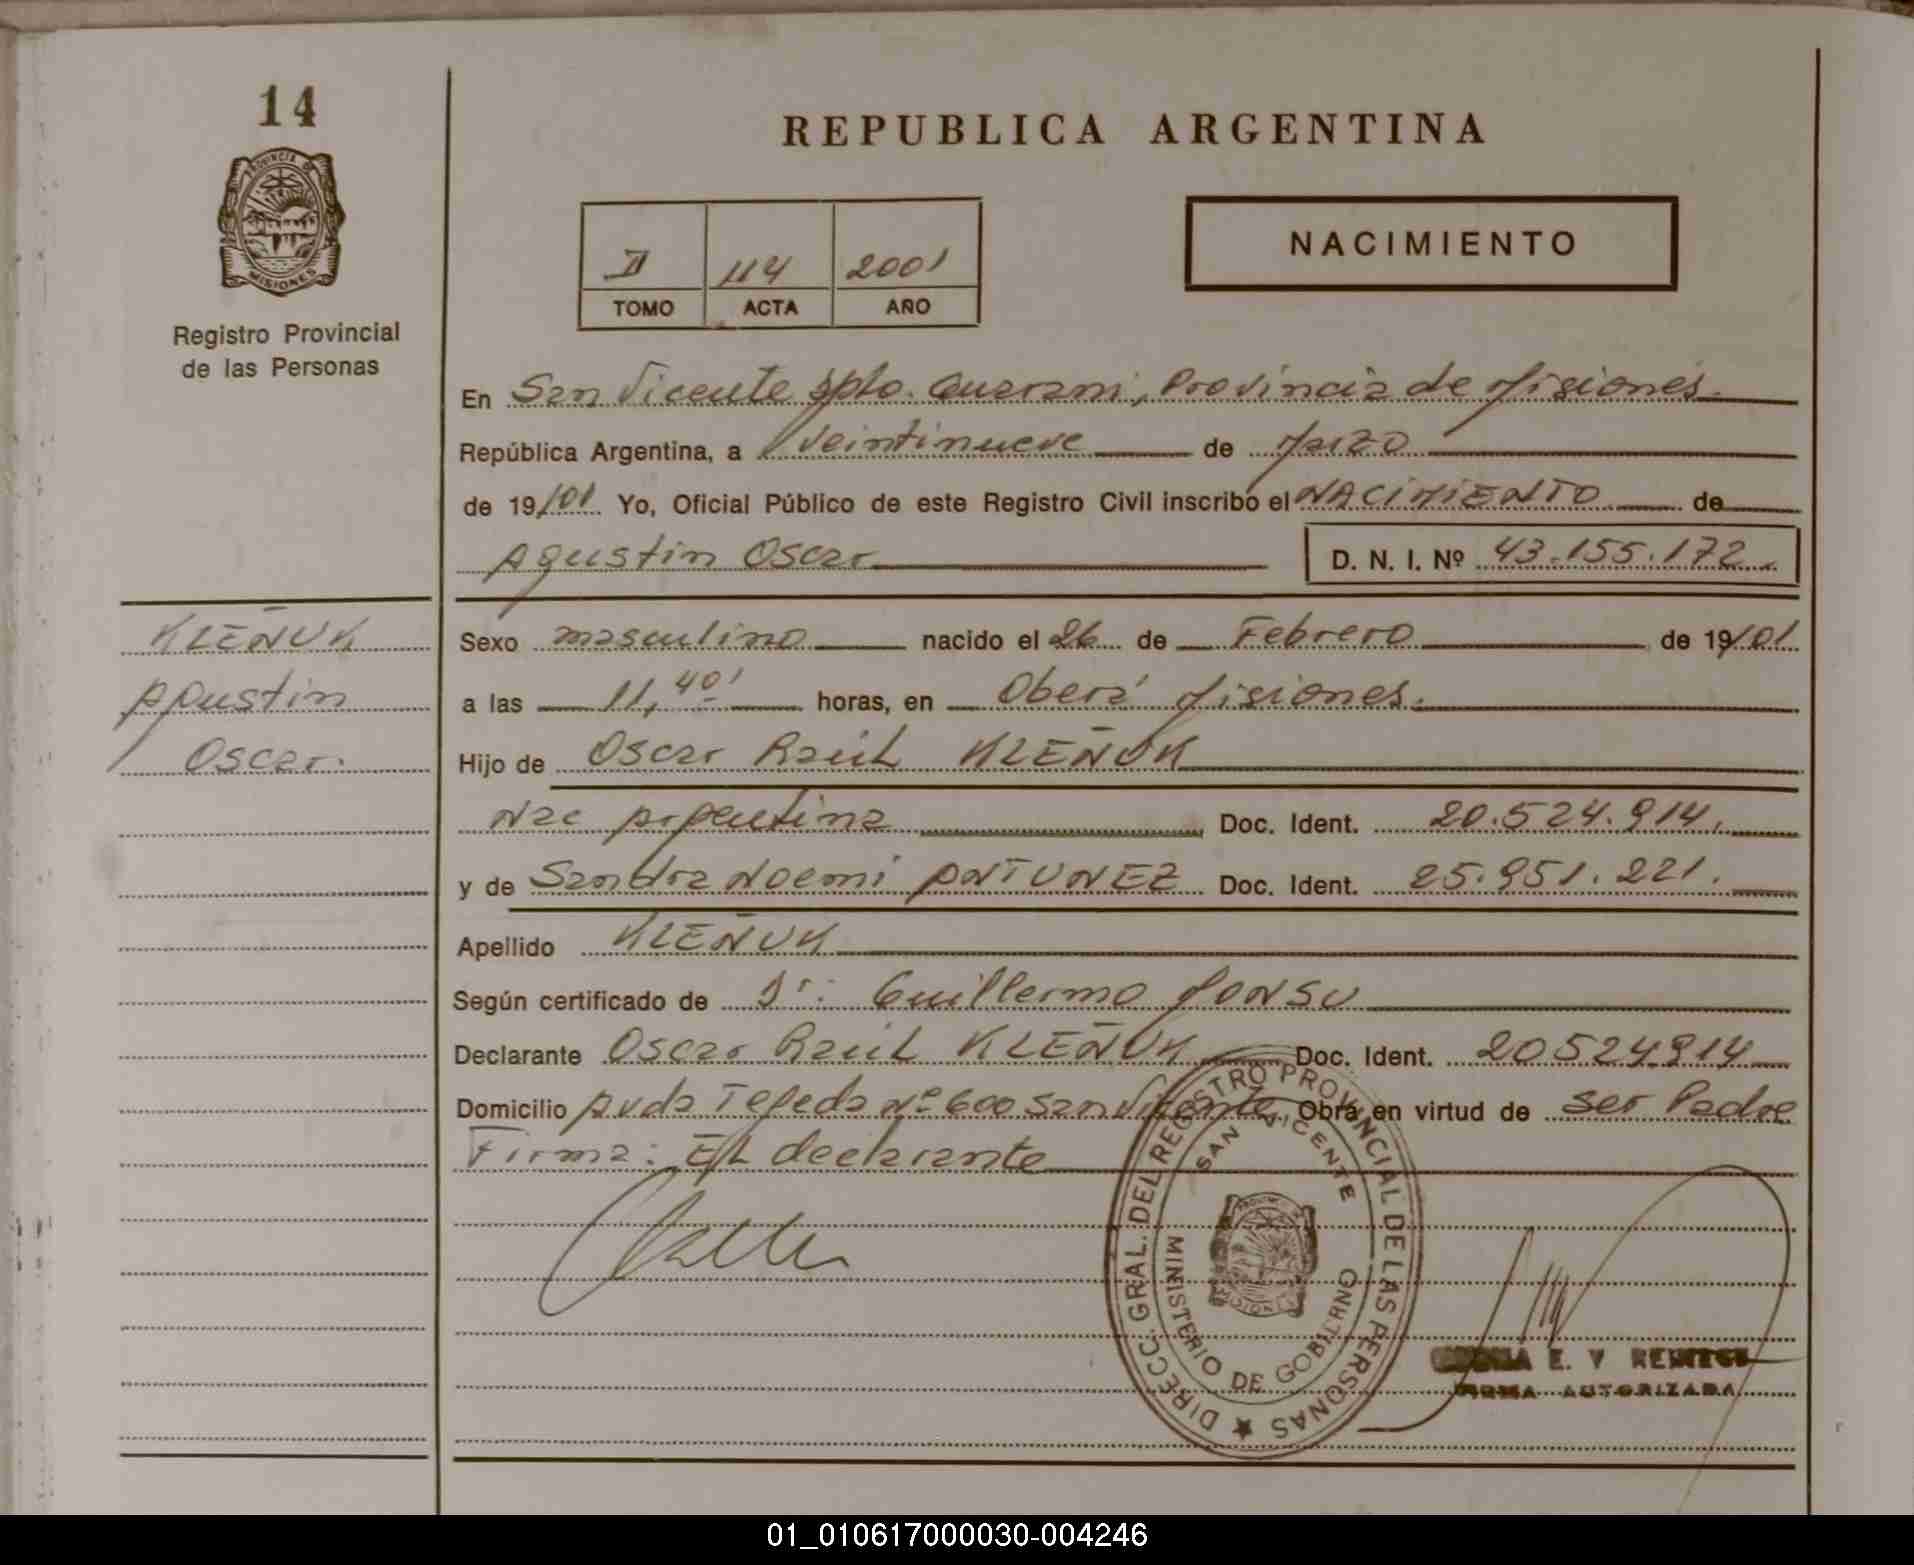 14
PROVINCIA DE
MISIONES
Registro Provincial
de las Personas
REPUBLICA ARGENTINA
II 114 2001
TOMO ACTA AÑO
NACIMIENTO
En San Vicente Dpto. Guarani, Provincia de Misiones.
República Argentina, a Veintinueve de Marzo
de 19/01 Yo, Oficial Público de este Registro Civil inscribo el NACIMIENTO de
Agustin Oscar D. N. I. Nº 43.155.172.
KLEÑUK
Agustin
Oscar.
Sexo masculino nacido el 26 de Febrero de 19/01
a las 11,40' horas, en Oberá Misiones.
Hijo de Oscar Raúl KLEÑUK
Nac Argentina Doc. Ident. 20.524.914.
y de Sandra Noemi ANTUNEZ Doc. Ident. 25.951.221.
Apellido KLEÑUK
Según certificado de Dr. Guillermo
Declarante Oscar Raúl KLEÑUK Doc. Ident. 20524914
Domicilio Avda Tejeda Nº 600 San Vicente Obra en virtud de ser Padre
Firma: El declarante
DIRECC. GRAL. DEL REGISTRO PROVINCIAL DE LAS PERSONAS
SAN VICENTE
MINISTERIO DE GOBIERNO
E. V
FIRMA AUTORIZADA
01_010617000030-004246